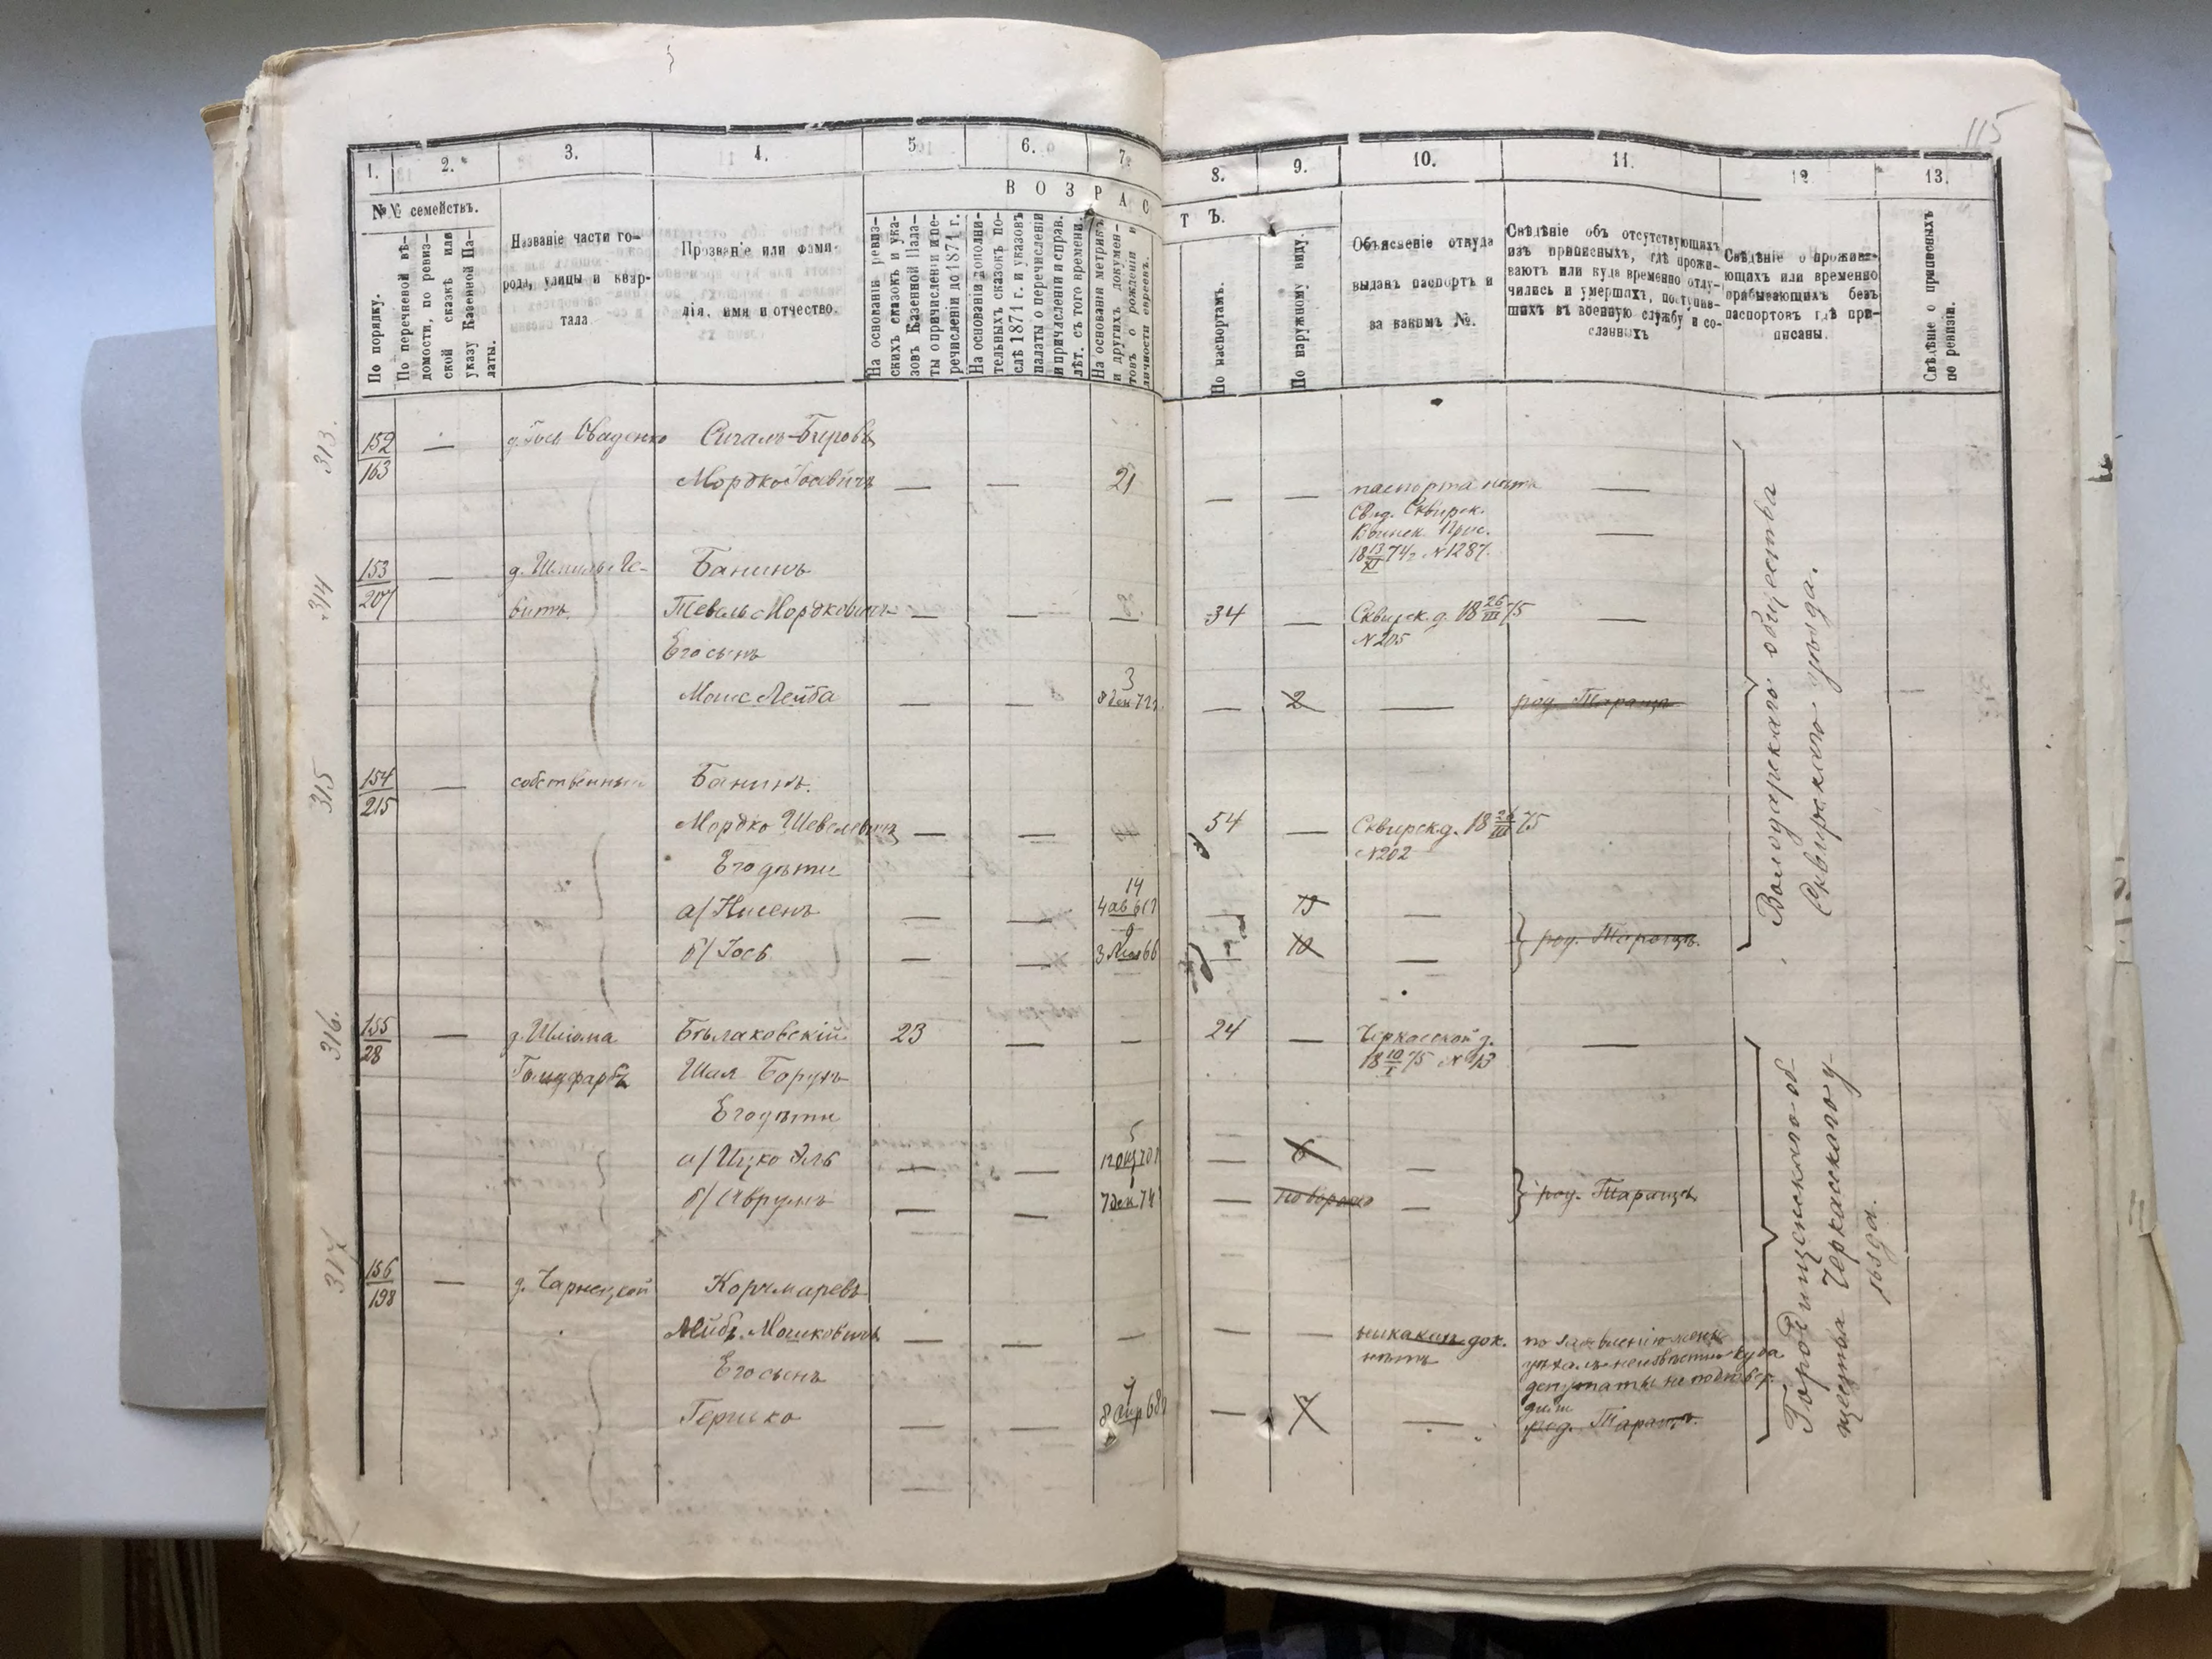 115
1.
2.
3.
4.
5.
6.
7.
8.
9.
10.
11.
12.
13.
№№ семействъ.
По порядку.
По перечневой вѣ-
домости, по ревиз-
ской сказкѣ или
указу Казенной Па-
латы.
Названіе части го-
рода, улицы и квар-
тала
Прозваніе или фами-
лія, имя и отчество.
ВОЗРАС
ТЪ.
На основаніи ревиз-
скихъ сказокъ и ука-
зовъ Казенной Пала-
ты о причисленіи и пе-
речисленіи до 1871 г.
На основаніи дополни-
тельныхъ сказокъ по-
слѣ 1871 г. и указовъ
палаты о перечисленіи
и причисленіи и справ.
лѣт. съ того времени.
На основаніи метрикъ
и другихъ докумен-
товъ о рожденіи и
личности евреевъ.
По паспортамъ.
По наружному виду.
Объясненіе откуда
выданъ паспортъ и
за какимъ №.
Свѣдѣніе объ отсутствующихъ
изъ приписныхъ, гдѣ прожи-
ваютъ или куда временно отлу-
чились и умершихъ, поступив-
шихъ въ военную службу и со-
сланныхъ
Свѣдѣніе о прожива-
ющихъ или временно
прибывающихъ безъ
паспортовъ гдѣ при-
писаны.
Свѣдѣніе о приписныхъ
по ревизіи.
313.
152
163
—
д. Іось Сваденко
Сигалъ-Бировъ
Мордко Іосевичъ
—
—
21
—
—
паспорта нѣтъ
—
Свид. Сквирск.
Воинск. Прис.
18 13/XI 74 г №1287.
—
314
153
207
—
д. Шмиль Ле-
витъ.
Банинъ
Тевель Мордковичъ
—
—
—
34
—
Сквирск. д. 18 26/III 75
№205
—
Его сынъ
Моис Лейба
—
—
3
8 дек 72 г.
—
2
—
род. Тараща
315
154
215
—
собственный
Банинъ.
Мордко Шевелевичъ
—
—
54
—
Сквирск. д. 18 26/III 75
№202
Его дѣти
а/ Нисенъ
—
—
14
4 ав 61 г
—
13
—
б/ Іось
—
—
9
3 66
—
10
—
род. Тараща.
Володарскаго общества
Сквирскаго уѣзда.
316.
155
28
—
д. Шлiома
Голцфарбъ
Бѣлаковскій
Шая Борухъ
23
—
—
24
—
Черкасской д.
18 10/I 75 №
—
Его дѣти
а/ Ицко Эль
—
—
5
12 окт 70 г
—
6
—
б/ Аврумъ
—
—
1
7 дек 74
—
новорож
—
род. Тараща
317
156
198
—
д. Чарнецкой
Корчмаревъ
Лейба Мошковичъ
—
—
—
—
—
никакихъ док.
нѣтъ
по заявленію жены
уѣхалъ неизвѣстно куда
депутаты не подтвер-
дили
Его сынъ
Гершко
—
—
7
8 апр 68 г
—
7
—
род. Тараща.
Городищенскаго об-
щества Черкасскаго у-
ѣзда.